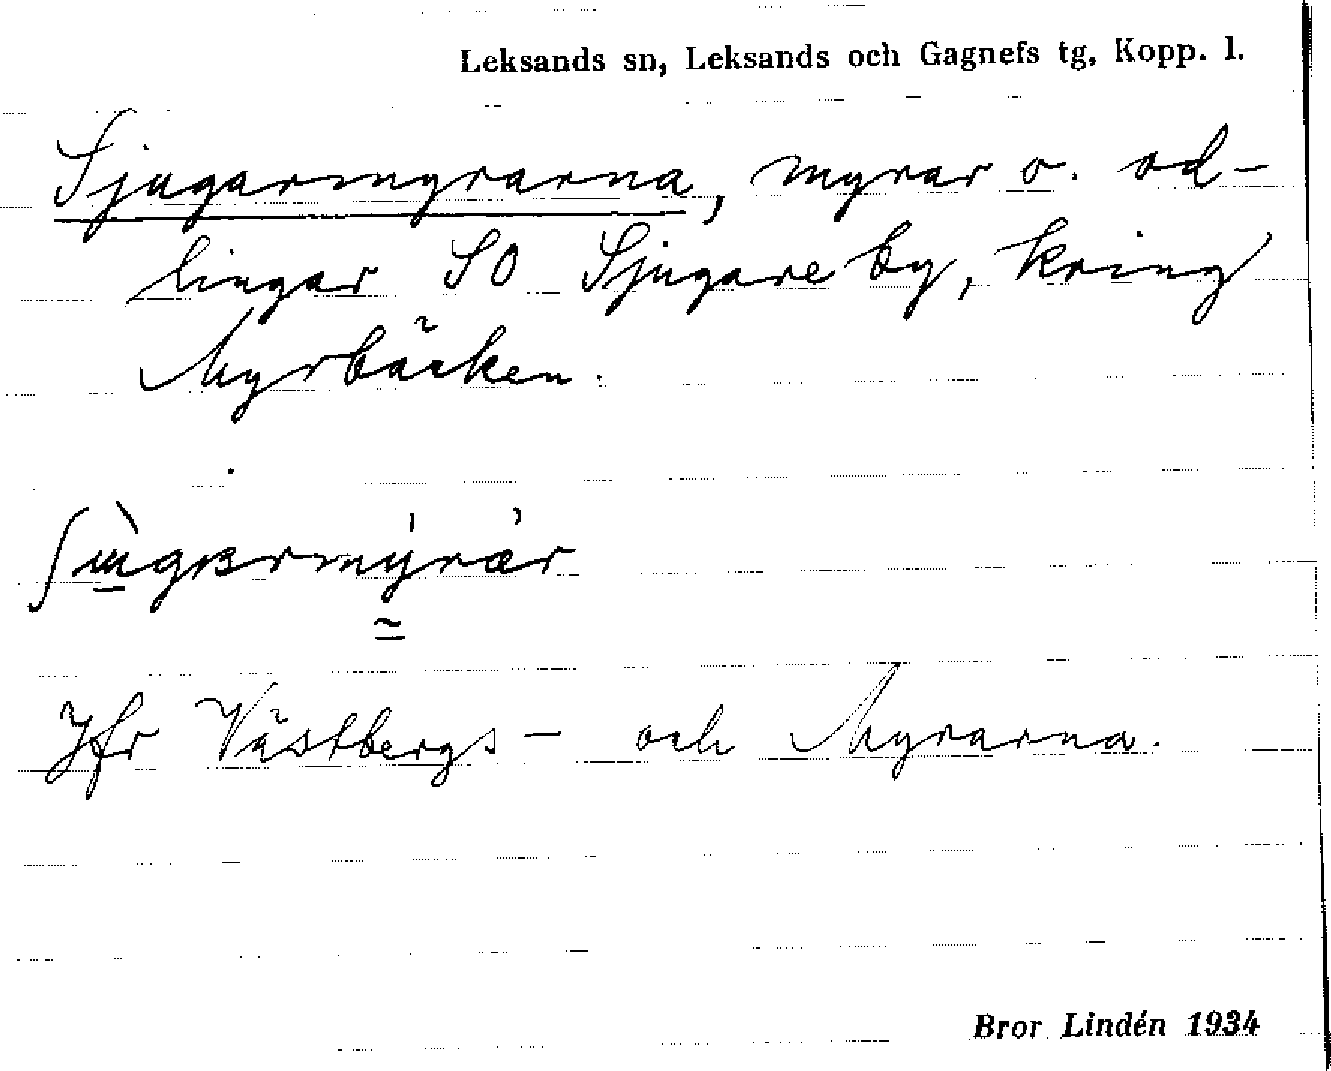 Leksands sn, Leksands och Gagnefs tg, Kopp. l.
Sjugarmyrarna, myrar o. od-
lingar SO Sjugare by, kring
Myrbäcken.
Jfr Västbergs- och Myrarna.
Bror Lindén 1934